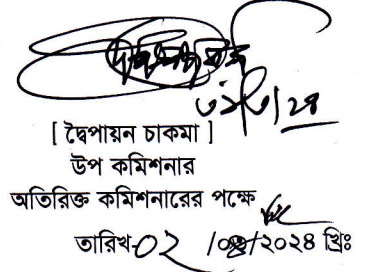 [ দ্বৈপায়ন চাকমা ]
উপ কমিশনার
অতিরিক্ত কমিশনারের পক্ষে
তারিখ-০২ /০৪/২০২৪ খ্রিঃ